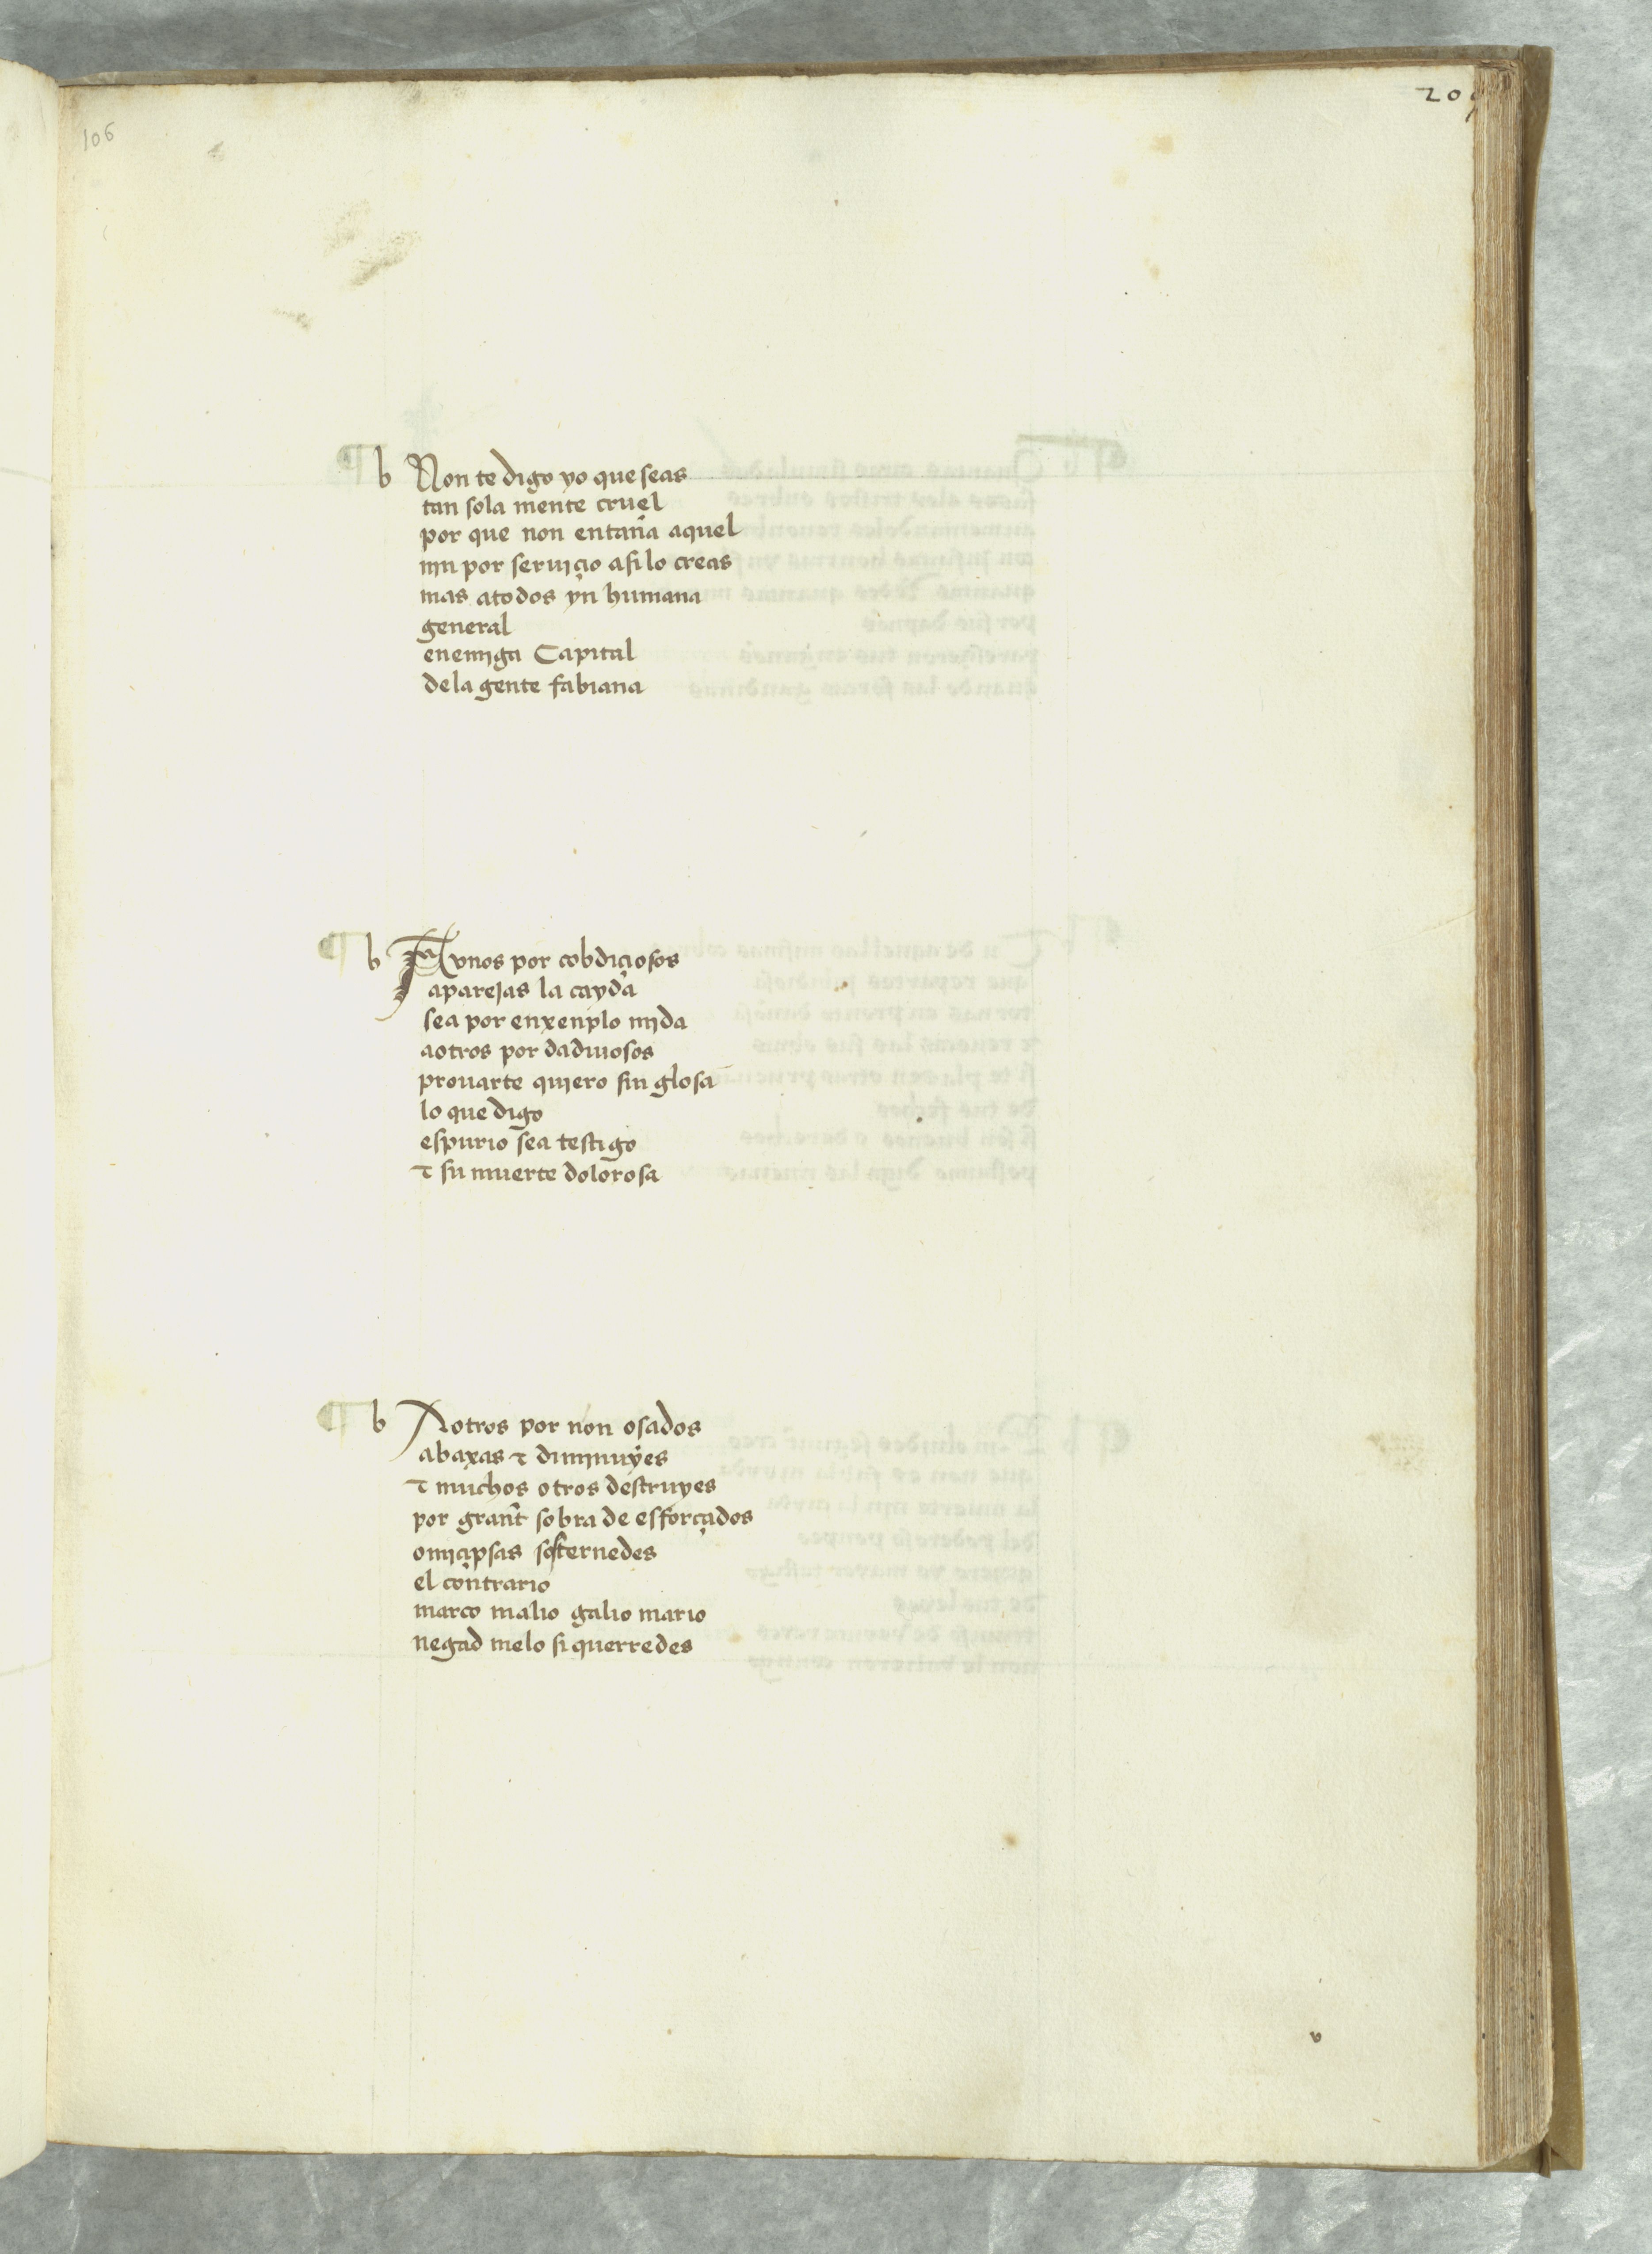 106
¶ b Non te digo yo que seas
tan sola mente cruel
por que non entaña aquel
njn por serujçio asi lo creas
mas atodos yn humana
general
enemjga Capital
dela gente fabiana
¶ b A vnos por cobdiçiosos
aparejas la cayda
sea por enxenplo mjda
aotros por dadiuosos
prouarte qujero sin glosa
lo que digo
espurio sea testigo
τ su muerte dolorosa
¶ b Aotros por non osados
abaxas τ dimjnuyes
τ muchos otros destruyes
por grant sobra de esforçados
omjçipsas sosternedes
el contrario
marco malio galio mario
negad melo si querredes
v